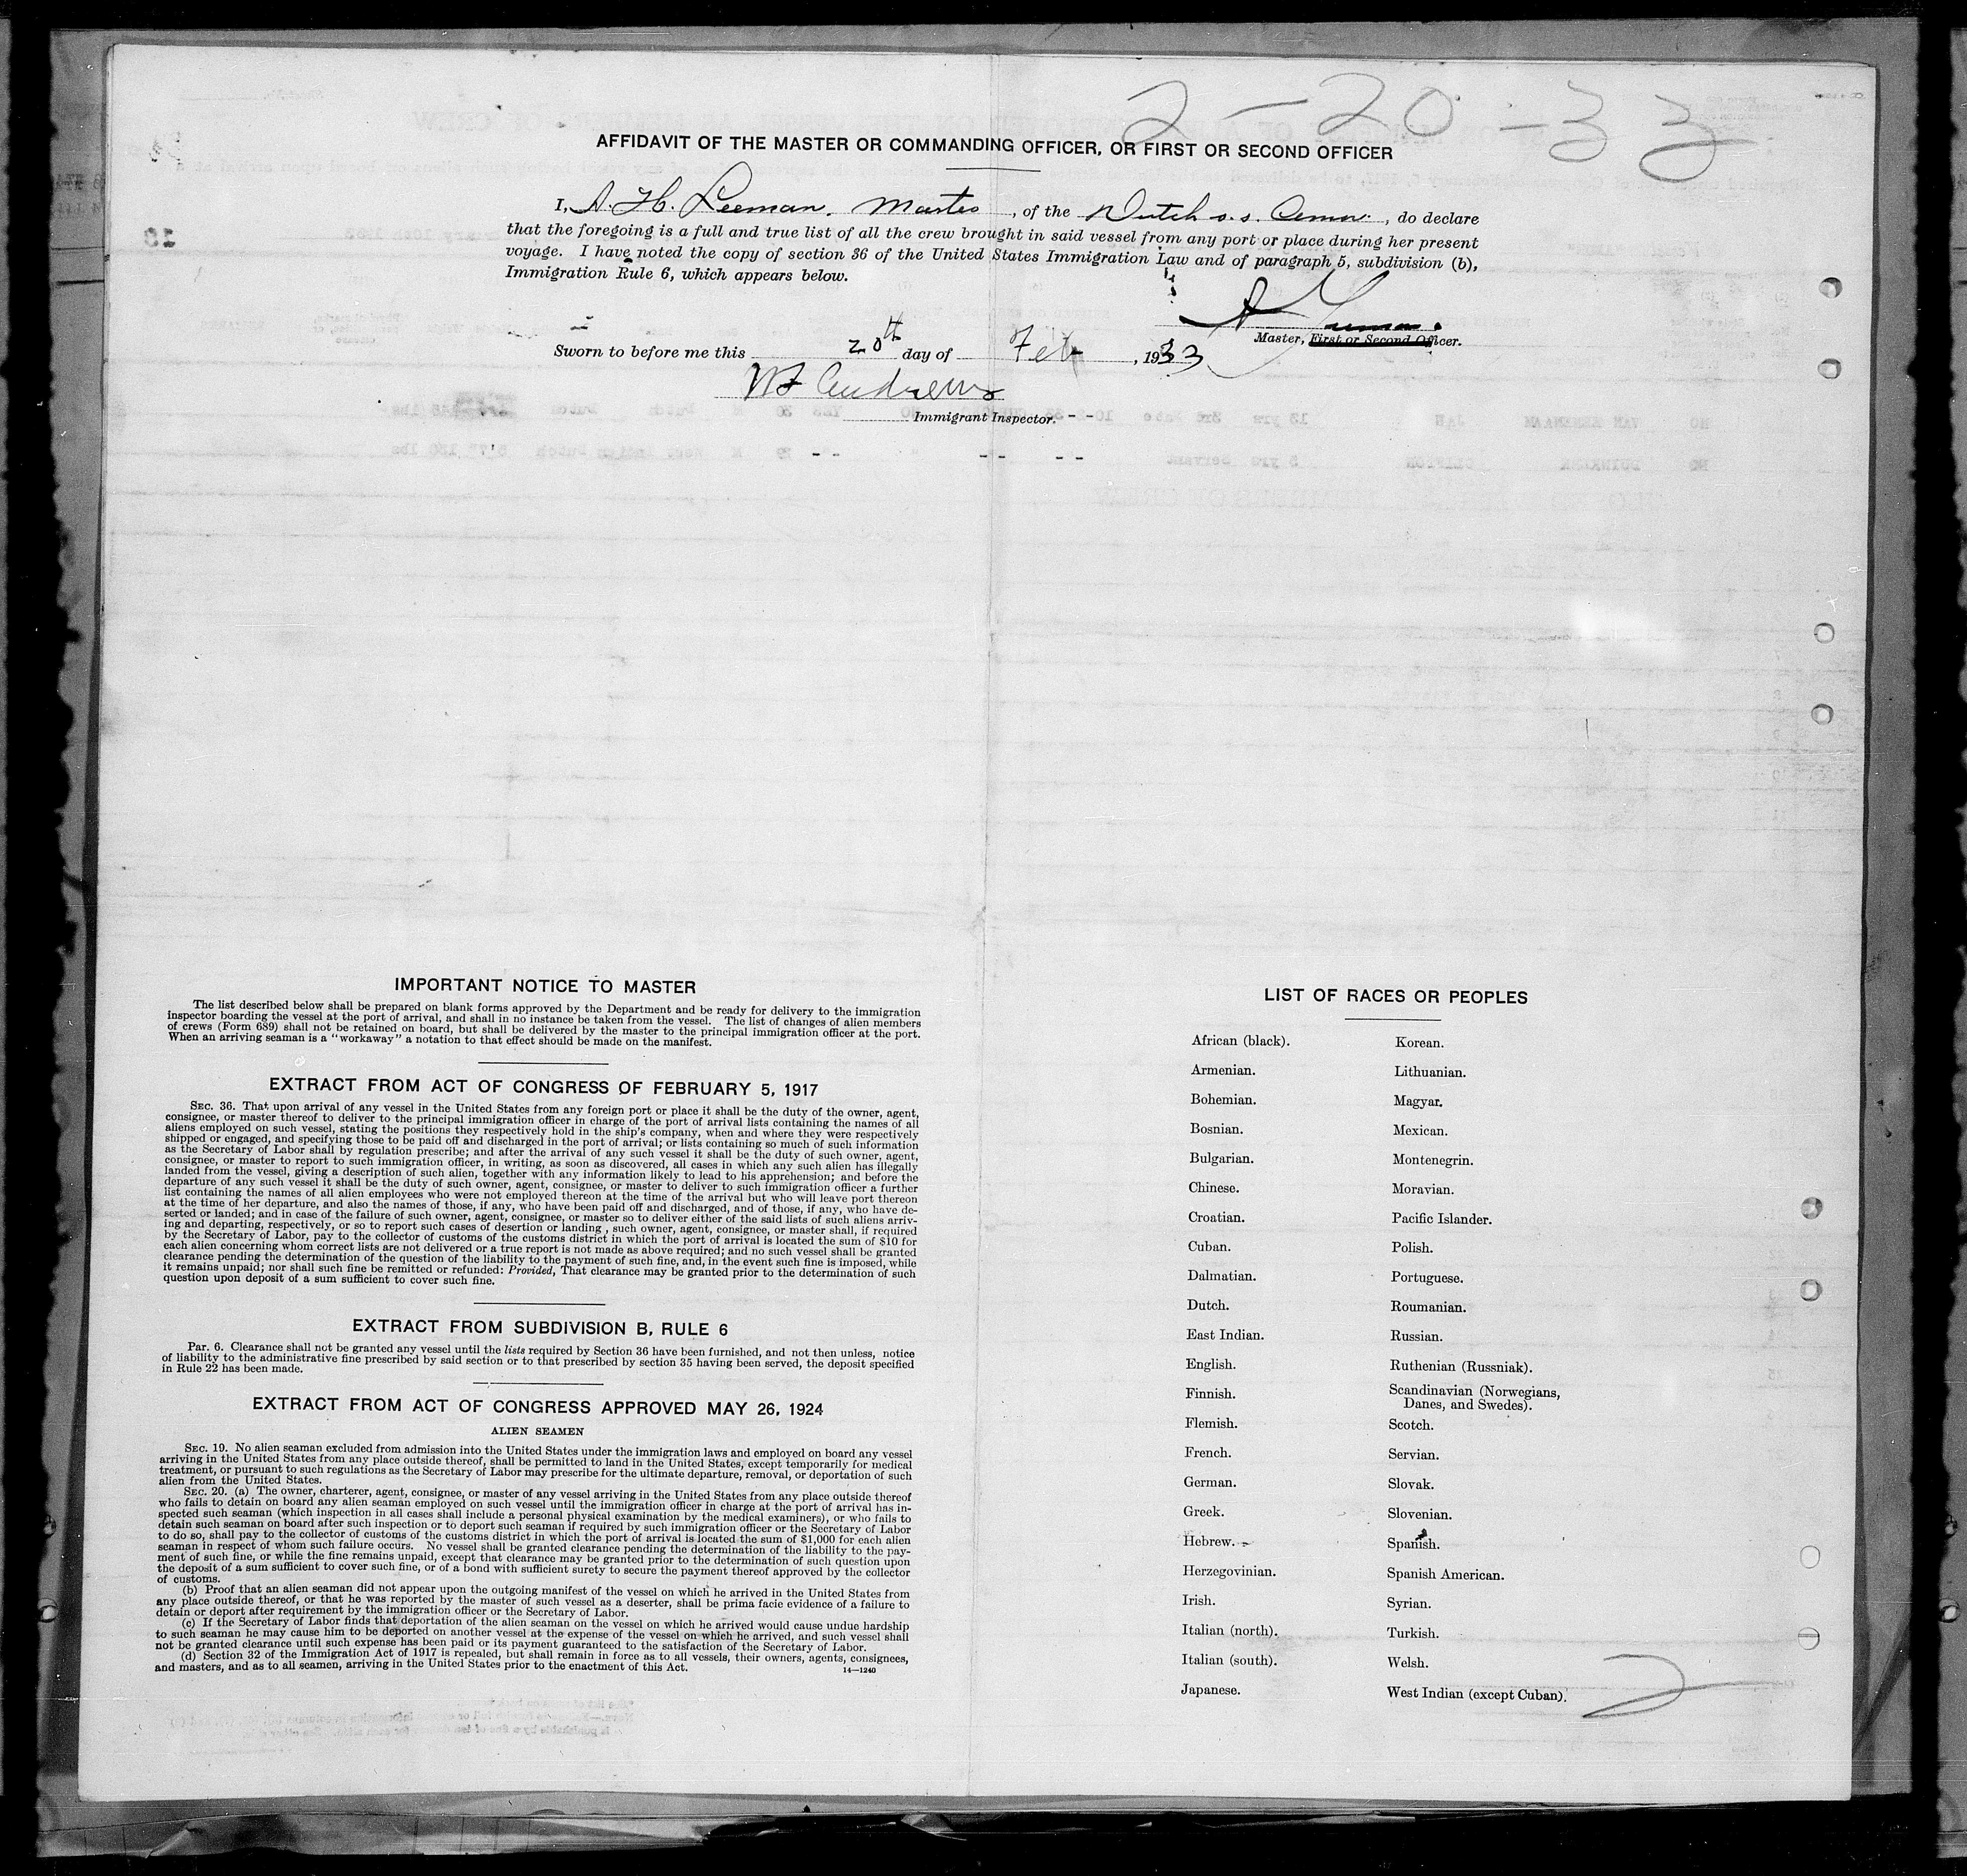 2-20-33
AFFIDAVIT OF THE MASTER OR COMMANDING OFFICER, OR FIRST OR SECOND OFFICER
I, A. H. Leeman, Master, of the Dutch s.s. , do declare
that the foregoing is a full and true list of all the crew brought in said vessel from any port or place during her present
voyage. I have noted the copy of section 36 of the United States Immigration Law and of paragraph 5, subdivision (b),
Immigration Rule 6, which appears below.
Master, First or Second Officer.
Sworn to before me this 20th day of Feb, 1933
Andrews
Immigrant Inspector.
IMPORTANT NOTICE TO MASTER
The list described below shall be prepared on blank forms approved by the Department and be ready for delivery to the immigration
inspector boarding the vessel at the port of arrival, and shall in no instance be taken from the vessel. The list of changes of alien members
of crews (Form 689) shall not be retained on board, but shall be delivered by the master to the principal immigration officer at the port.
When an arriving seaman is a "workaway" a notation to that effect should be made on the manifest.
EXTRACT FROM ACT OF CONGRESS OF FEBRUARY 5, 1917
SEC. 36. That upon arrival of any vessel in the United States from any foreign port or place it shall be the duty of the owner, agent,
consignee, or master thereof to deliver to the principal immigration officer in charge of the port of arrival lists containing the names of all
aliens employed on such vessel, stating the positions they respectively hold in the ship's company, when and where they were respectively
shipped or engaged, and specifying those to be paid off and discharged in the port of arrival; or lists containing so much of such information
as the Secretary of Labor shall by regulation prescribe; and after the arrival of any such vessel it shall be the duty of such owner, agent,
consignee, or master to report to such immigration officer, in writing, as soon as discovered, all cases in which any such alien has illegally
landed from the vessel, giving a description of such alien, together with any information likely to lead to his apprehension; and before the
departure of any such vessel it shall be the duty of such owner, agent, consignee, or master to deliver to such immigration officer a further
list containing the names of all alien employees who were not employed thereon at the time of the arrival but who will leave port thereon
at the time of her departure, and also the names of those, if any, who have been paid off and discharged, and of those, if any, who have de-
serted or landed; and in case of the failure of such owner, agent, consignee, or master so to deliver either of the said lists of such aliens arriv-
ing and departing, respectively, or so to report such cases of desertion or landing , such owner, agent, consignee, or master shall, if required
by the Secretary of Labor, pay to the collector of customs of the customs district in which the port of arrival is located the sum of $10 for
each alien concerning whom correct lists are not delivered or a true report is not made as above required; and no such vessel shall be granted
clearance pending the determination of the question of the liability to the payment of such fine, and, in the event such fine is imposed, while
it remains unpaid; nor shall such fine be remitted or refunded: Provided, That clearance may be granted prior to the determination of such
question upon deposit of a sum sufficient to cover such fine.
EXTRACT FROM SUBDIVISION B, RULE 6
Par. 6. Clearance shall not be granted any vessel until the lists required by Section 36 have been furnished, and not then unless, notice
of liability to the administrative fine prescribed by said section or to that prescribed by section 35 having been served, the deposit specified
in Rule 22 has been made.
EXTRACT FROM ACT OF CONGRESS APPROVED MAY 26, 1924
ALIEN SEAMEN
SEC. 19. No alien seaman excluded from admission into the United States under the immigration laws and employed on board any vessel
arriving in the United States from any place outside thereof, shall be permitted to land in the United States, except temporarily for medical
treatment, or pursuant to such regulations as the Secretary of Labor may prescribe for the ultimate departure, removal, or deportation of such
alien from the United States.
SEC. 20. (a) The owner, charterer, agent, consignee, or master of any vessel arriving in the United States from any place outside thereof
who fails to detain on board any alien seaman employed on such vessel until the immigration officer in charge at the port of arrival has in-
spected such seaman (which inspection in all cases shall include a personal physical examination by the medical examiners), or who fails to
detain such seaman on board after such inspection or to deport such seaman if required by such immigration officer or the Secretary of Labor
to do so, shall pay to the collector of customs of the customs district in which the port of arrival is located the sum of $1,000 for each alien
seaman in respect of whom such failure occurs. No vessel shall be granted clearance pending the determination of the liability to the pay-
ment of such fine, or while the fine remains unpaid, except that clearance may be granted prior to the determination of such question upon
the deposit of a sum sufficient to cover such fine, or of a bond with sufficient surety to secure the payment thereof approved by the collector
of customs.
(b) Proof that an alien seaman did not appear upon the outgoing manifest of the vessel on which he arrived in the United States from
any place outside thereof, or that he was reported by the master of such vessel as a deserter, shall be prima facie evidence of a failure to
detain or deport after requirement by the immigration officer or the Secretary of Labor.
(c) If the Secretary of Labor finds that deportation of the alien seaman on the vessel on which he arrived would cause undue hardship
to such seaman he may cause him to be deported on another vessel at the expense of the vessel on which he arrived, and such vessel shall
not be granted clearance until such expense has been paid or its payment guaranteed to the satisfaction of the Secretary of Labor.
(d) Section 32 of the Immigration Act of 1917 is repealed, but shall remain in force as to all vessels, their owners, agents, consignees,
and masters, and as to all seamen, arriving in the United States prior to the enactment of this Act.
14—1240
LIST OF RACES OR PEOPLES
African (black). Korean.
Armenian. Lithuanian.
Bohemian. Magyar.
Bosnian. Mexican.
Bulgarian. Montenegrin.
Chinese. Moravian.
Croatian. Pacific Islander.
Cuban. Polish.
Dalmatian. Portuguese.
Dutch. Roumanian.
East Indian. Russian.
English. Ruthenian (Russniak).
Finnish. Scandinavian (Norwegians,
Danes, and Swedes).
Flemish. Scotch.
French. Servian.
German. Slovak.
Greek. Slovenian.
Hebrew. Spanish.
Herzegovinian. Spanish American.
Irish. Syrian.
Italian (north). Turkish.
Italian (south). Welsh.
Japanese. West Indian (except Cuban).
2